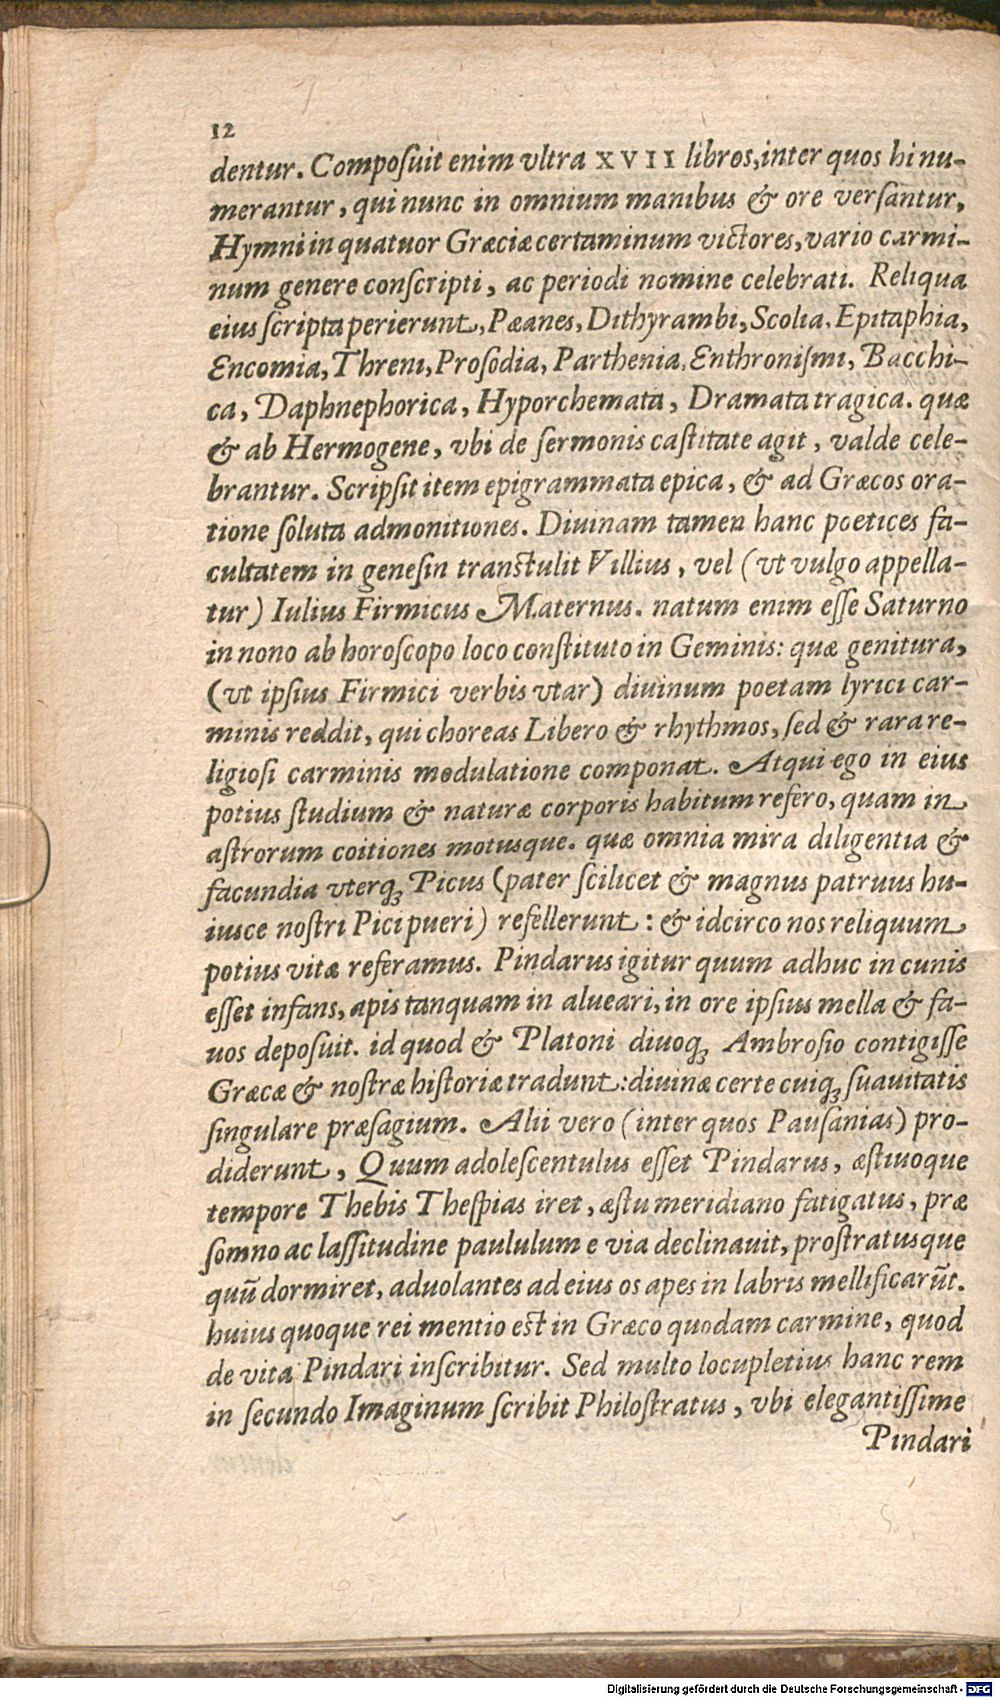 12
dentur. Compoſuit enim vltra XVII libros, inter quos hi nu-
merantur, qui nunc in omnium manibus & ore verſantur,
Hymni in quatuor Græciæ certaminum victores, vario carmi-
num genere conſcripti, ac periodi nomine celebrati. Reliqua
eius ſcripta perierunt, Pæanes, Dithyrambi, Scolia, Epitaphia,
Encomia, Threni, Proſodia, Parthenia, Enthroniſmi, Bacchi-
ca, Daphnephorica, Hyporchemata, Dramata tragica. quæ
& ab Hermogene, vbi de ſermonis caſtitate agit, valde cele-
brantur. Scripſit item epigrammata epica, & ad Græcos ora-
tione ſoluta admonitiones. Diuinam tamen hanc poetices fa-
cultatem in geneſin tranſtulit Villius, vel (vt vulgo appella-
tur) Iulius Firmicus Maternus. natum enim eſſe Saturno
in nono ab horoſcopo loco conſtituto in Geminis: quæ genitura,
(vt ipſius Firmici verbis vtar) diuinum poetam lyrici car-
minis reddit, qui choreas Libero & rhythmos, ſed & rara re-
ligioſi carminis modulatione componat. Atqui ego in eius
potius ſtudium & naturæ corporis habitum refero, quam in
aſtrorum coitiones motusque. quæ omnia mira diligentia &
facundia vterq; Picus (pater ſcilicet & magnus patruus hu-
iusce noſtri Pici pueri) refellerunt: & idcirco nos reliquum
potius vitæ referamus. Pindarus igitur quum adhuc in cunis
eſſet infans, apis tanquam in alueari, in ore ipſius mella & fa-
uos depoſuit. id quod & Platoni diuoq; Ambroſio contigiſſe
Græcæ & noſtræ hiſtoriæ tradunt: diuinæ certe cuiq; ſuauitatis
ſingulare præſagium. Alii vero (inter quos Pauſanias) pro-
diderunt, Quum adoleſcentulus eſſet Pindarus, æſtiuoque
tempore Thebis Theſpias iret, æſtu meridiano fatigatus, præ
ſomno ac laſſitudine paululum e via declinauit, proſtratusque
quū dormiret, aduolantes ad eius os apes in labris mellificarūt.
huius quoque rei mentio eſt in Græco quodam carmine, quod
de vita Pindari inſcribitur. Sed multo locupletius hanc rem
in ſecundo Imaginum ſcribit Philoſtratus, vbi elegantiſſime
Pindari
Digitalisierung gefördert durch die Deutsche Forschungsgemeinschaft - DFG